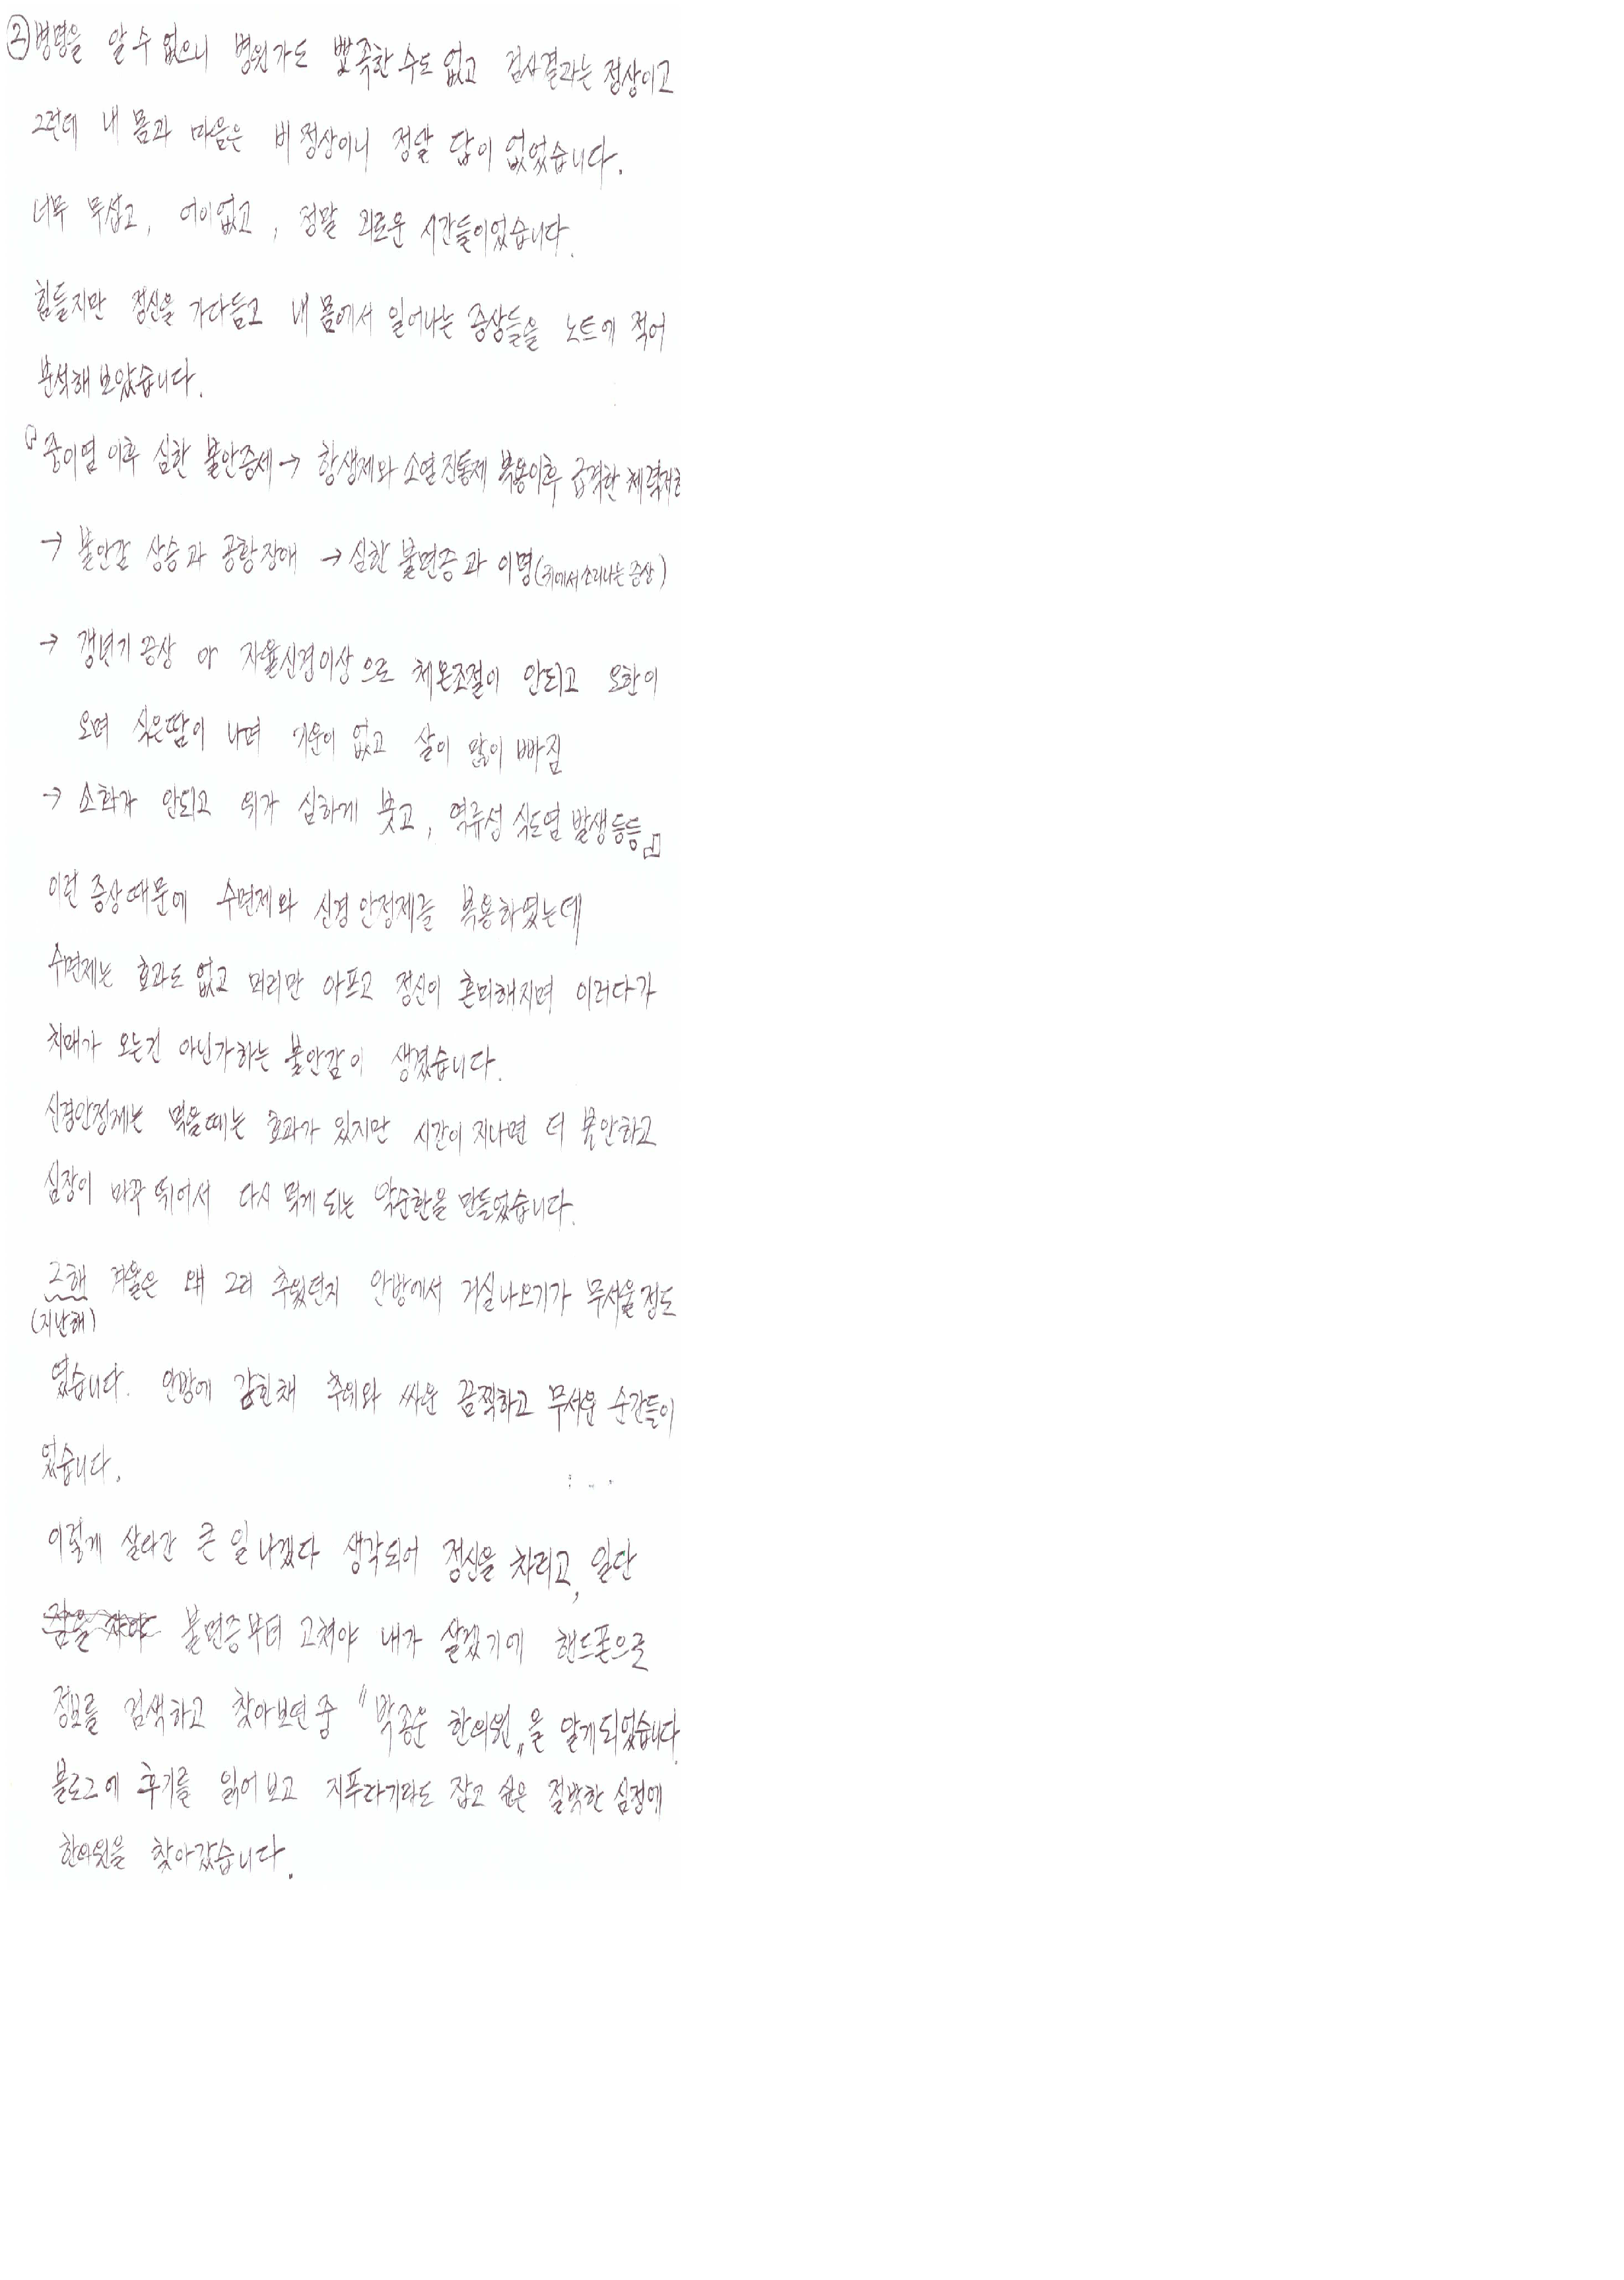 ② 병명을 알 수 없으니 병원가도 뾰족한 수도 없고 검사결과는 정상이고
그런데 내 몸과 마음은 비정상이니 정말 답이 없었습니다.
너무 무섭고, 어이없고, 정말 괴로운 시간들이었습니다.
힘들지만 정신을 가다듬고 내 몸에서 일어나는 증상들을 노트에 적어
분석해 보았습니다.
「중이염 이후 심한 불안증세 → 항생제와 소염진통제 복용이후 급격한 체력저하
→ 불안감 상승과 공황장애 → 심한 불면증과 이명(귀에서 소리나는 증상)
→ 갱년기 증상 와 자율신경이상으로 체온조절이 안되고 오한이
오며 식은땀이 나며 기운이 없고 살이 많이 빠짐
→ 소화가 안되고 위가 심하게 붓고, 역류성 식도염 발생 등등」
이런 증상때문에 수면제와 신경안정제를 복용하였는데
수면제는 효과도 없고 머리만 아프고 정신이 혼미해지며 이러다가
치매가 오는건 아닌가하는 불안감이 생겼습니다.
신경안정제는 먹을때는 효과가 있지만 시간이 지나면 더 불안하고
심장이 마구 뛰어서 다시 먹게 되는 악순환을 만들었습니다.
그해 겨울은 왜 그리 추웠던지 안방에서 거실나오기가 무서울 정도
(지난해)
였습니다. 안방에 갇힌채 추위와 싸운 끔찍하고 무서운 순간들이
었습니다.
이렇게 살다간 큰 일 나겠다 생각되어 정신을 차리고, 일단
불면증부터 고쳐야 내가 살겠기에 핸드폰으로
정보를 검색하고 찾아보던 중 "박종운 한의원"을 알게되었습니다.
블로그에 후기를 읽어보고 지푸라기라도 잡고 싶은 절박한 심정에
한의원을 찾아갔습니다.